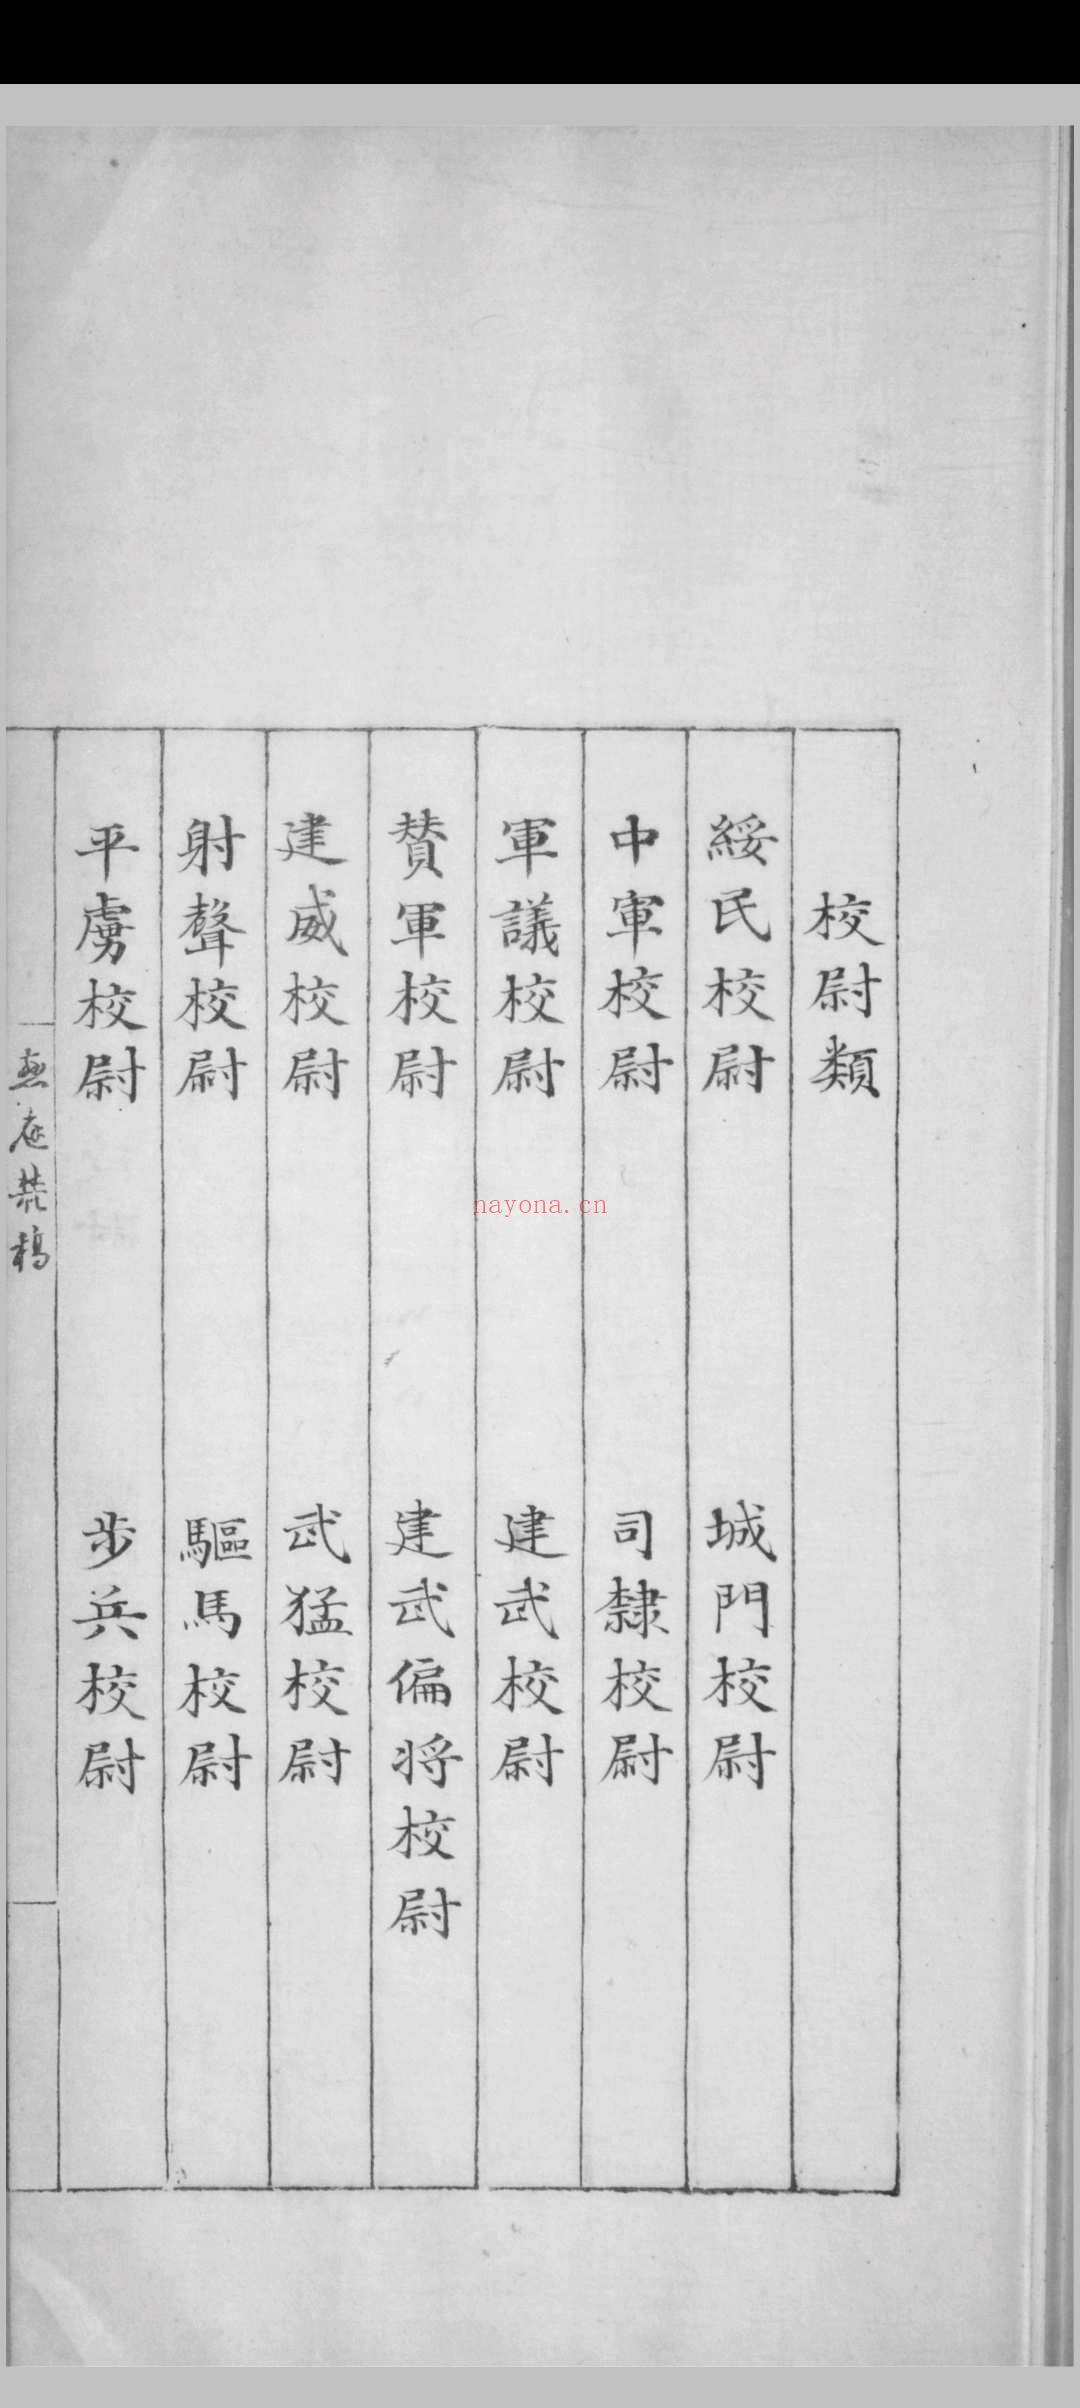 校尉類
綏民校尉
城門校尉
中軍校尉
司隸校尉
軍議校尉
建武校尉
賛軍校尉
建武偏将校尉
建威校尉
武猛校尉
射聲校尉
驅馬校尉
平虜校尉
步兵校尉
nayona.cn